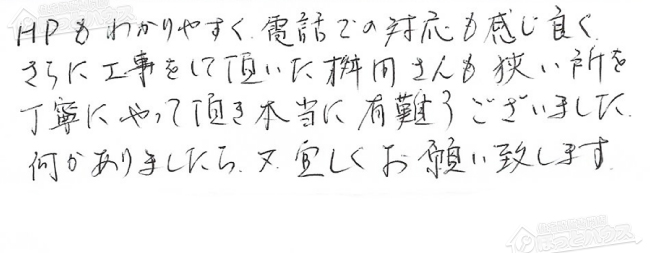 HPもわかりやすく、電話での対応も感じ良く
さらに工事をして頂いた桝田さんも狭い所を
丁寧にやって頂き本当に有難うございました。
何かありましたら、又、宜しくお願い致します。